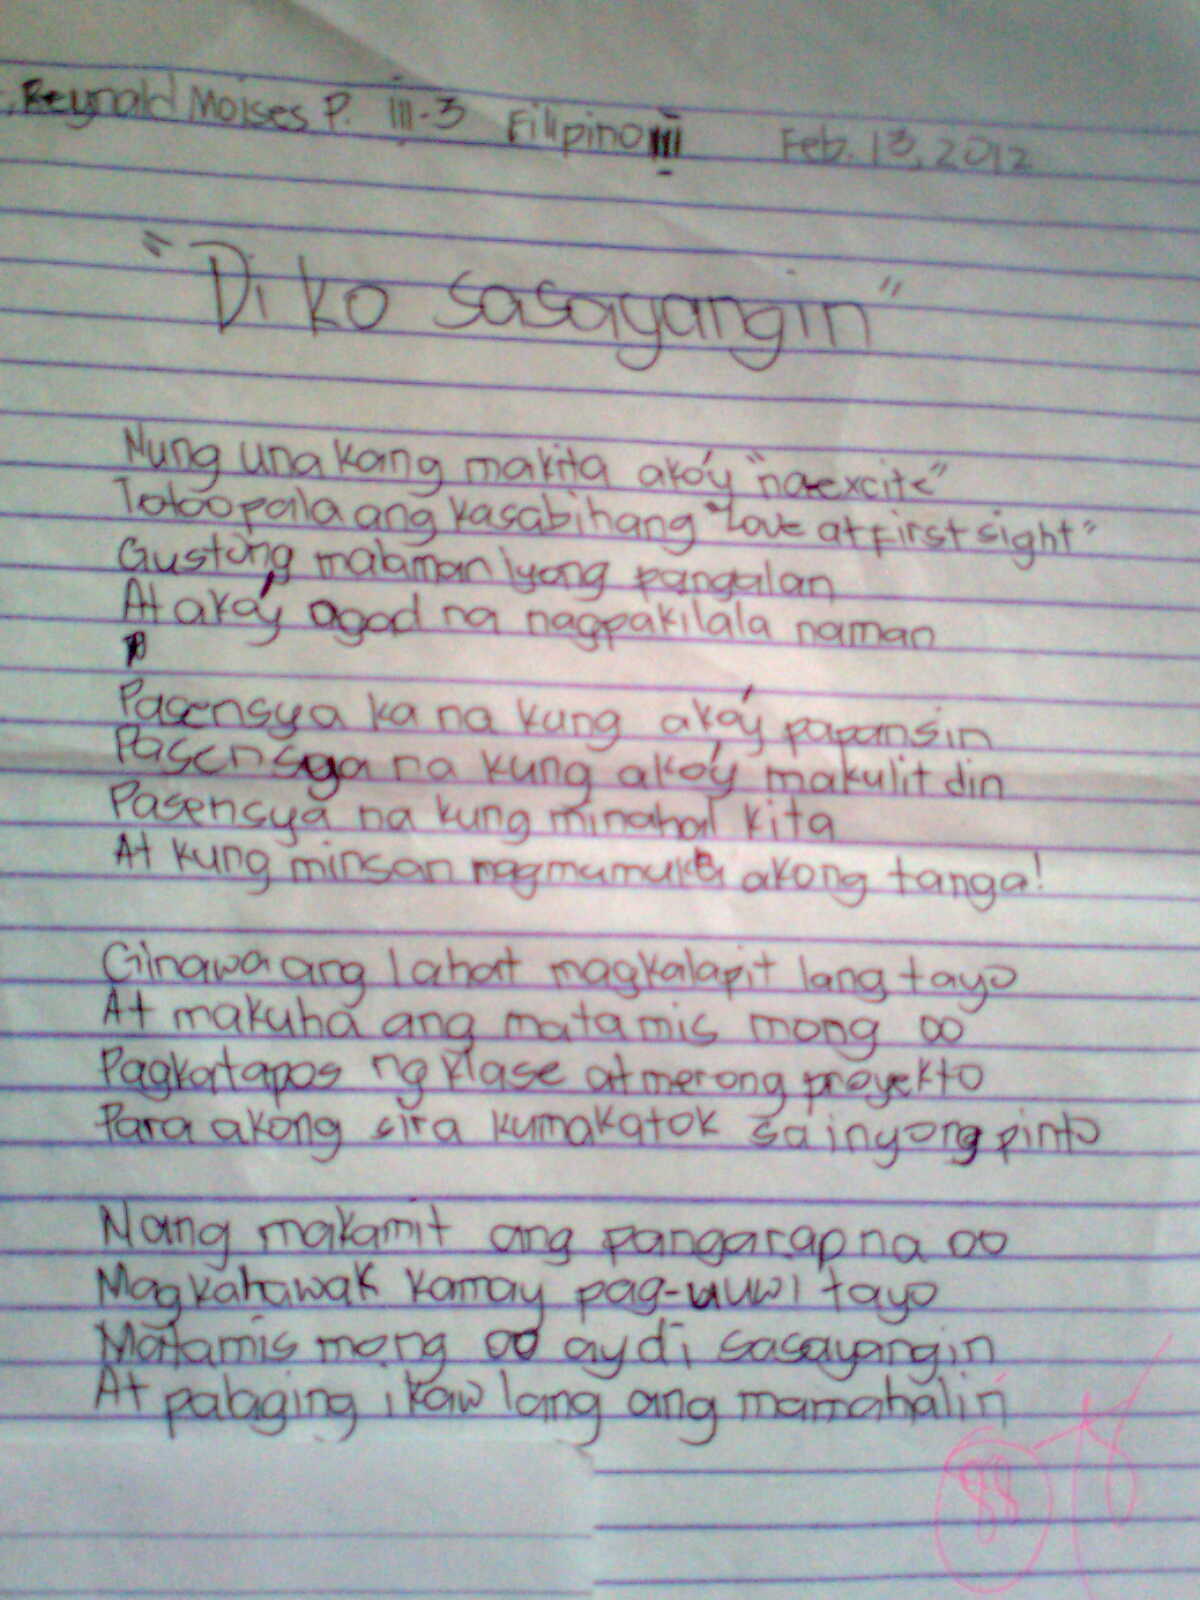 Reynald Moises P. III-3 Filipino III Feb. 13, 2012
"Di ko sasayangin"
Nung una kang makita ako'y "na-excite"
Totoo pala ang kasabihang "Love at first sight"
Gustong malaman iyong pangalan
At ako'y agad na nagpakilala naman
Pasensya ka na kung ako'y papansin
Pasensya na kung ako'y makulit din
Pasensya na kung minahal kita
At kung minsan nagmumuka akong tanga!
Ginawa ang lahat magkalapit lang tayo
At makuha ang matamis mong oo
Pagkatapos ng klase at merong proyekto
Para akong sira kumakatok sa inyong pinto
Nang makamit ang pangarap na oo
Magkahawak kamay pag-uuwi tayo
Matamis mong oo ay di sasayangin
At palaging ikaw lang ang mamahalin
88